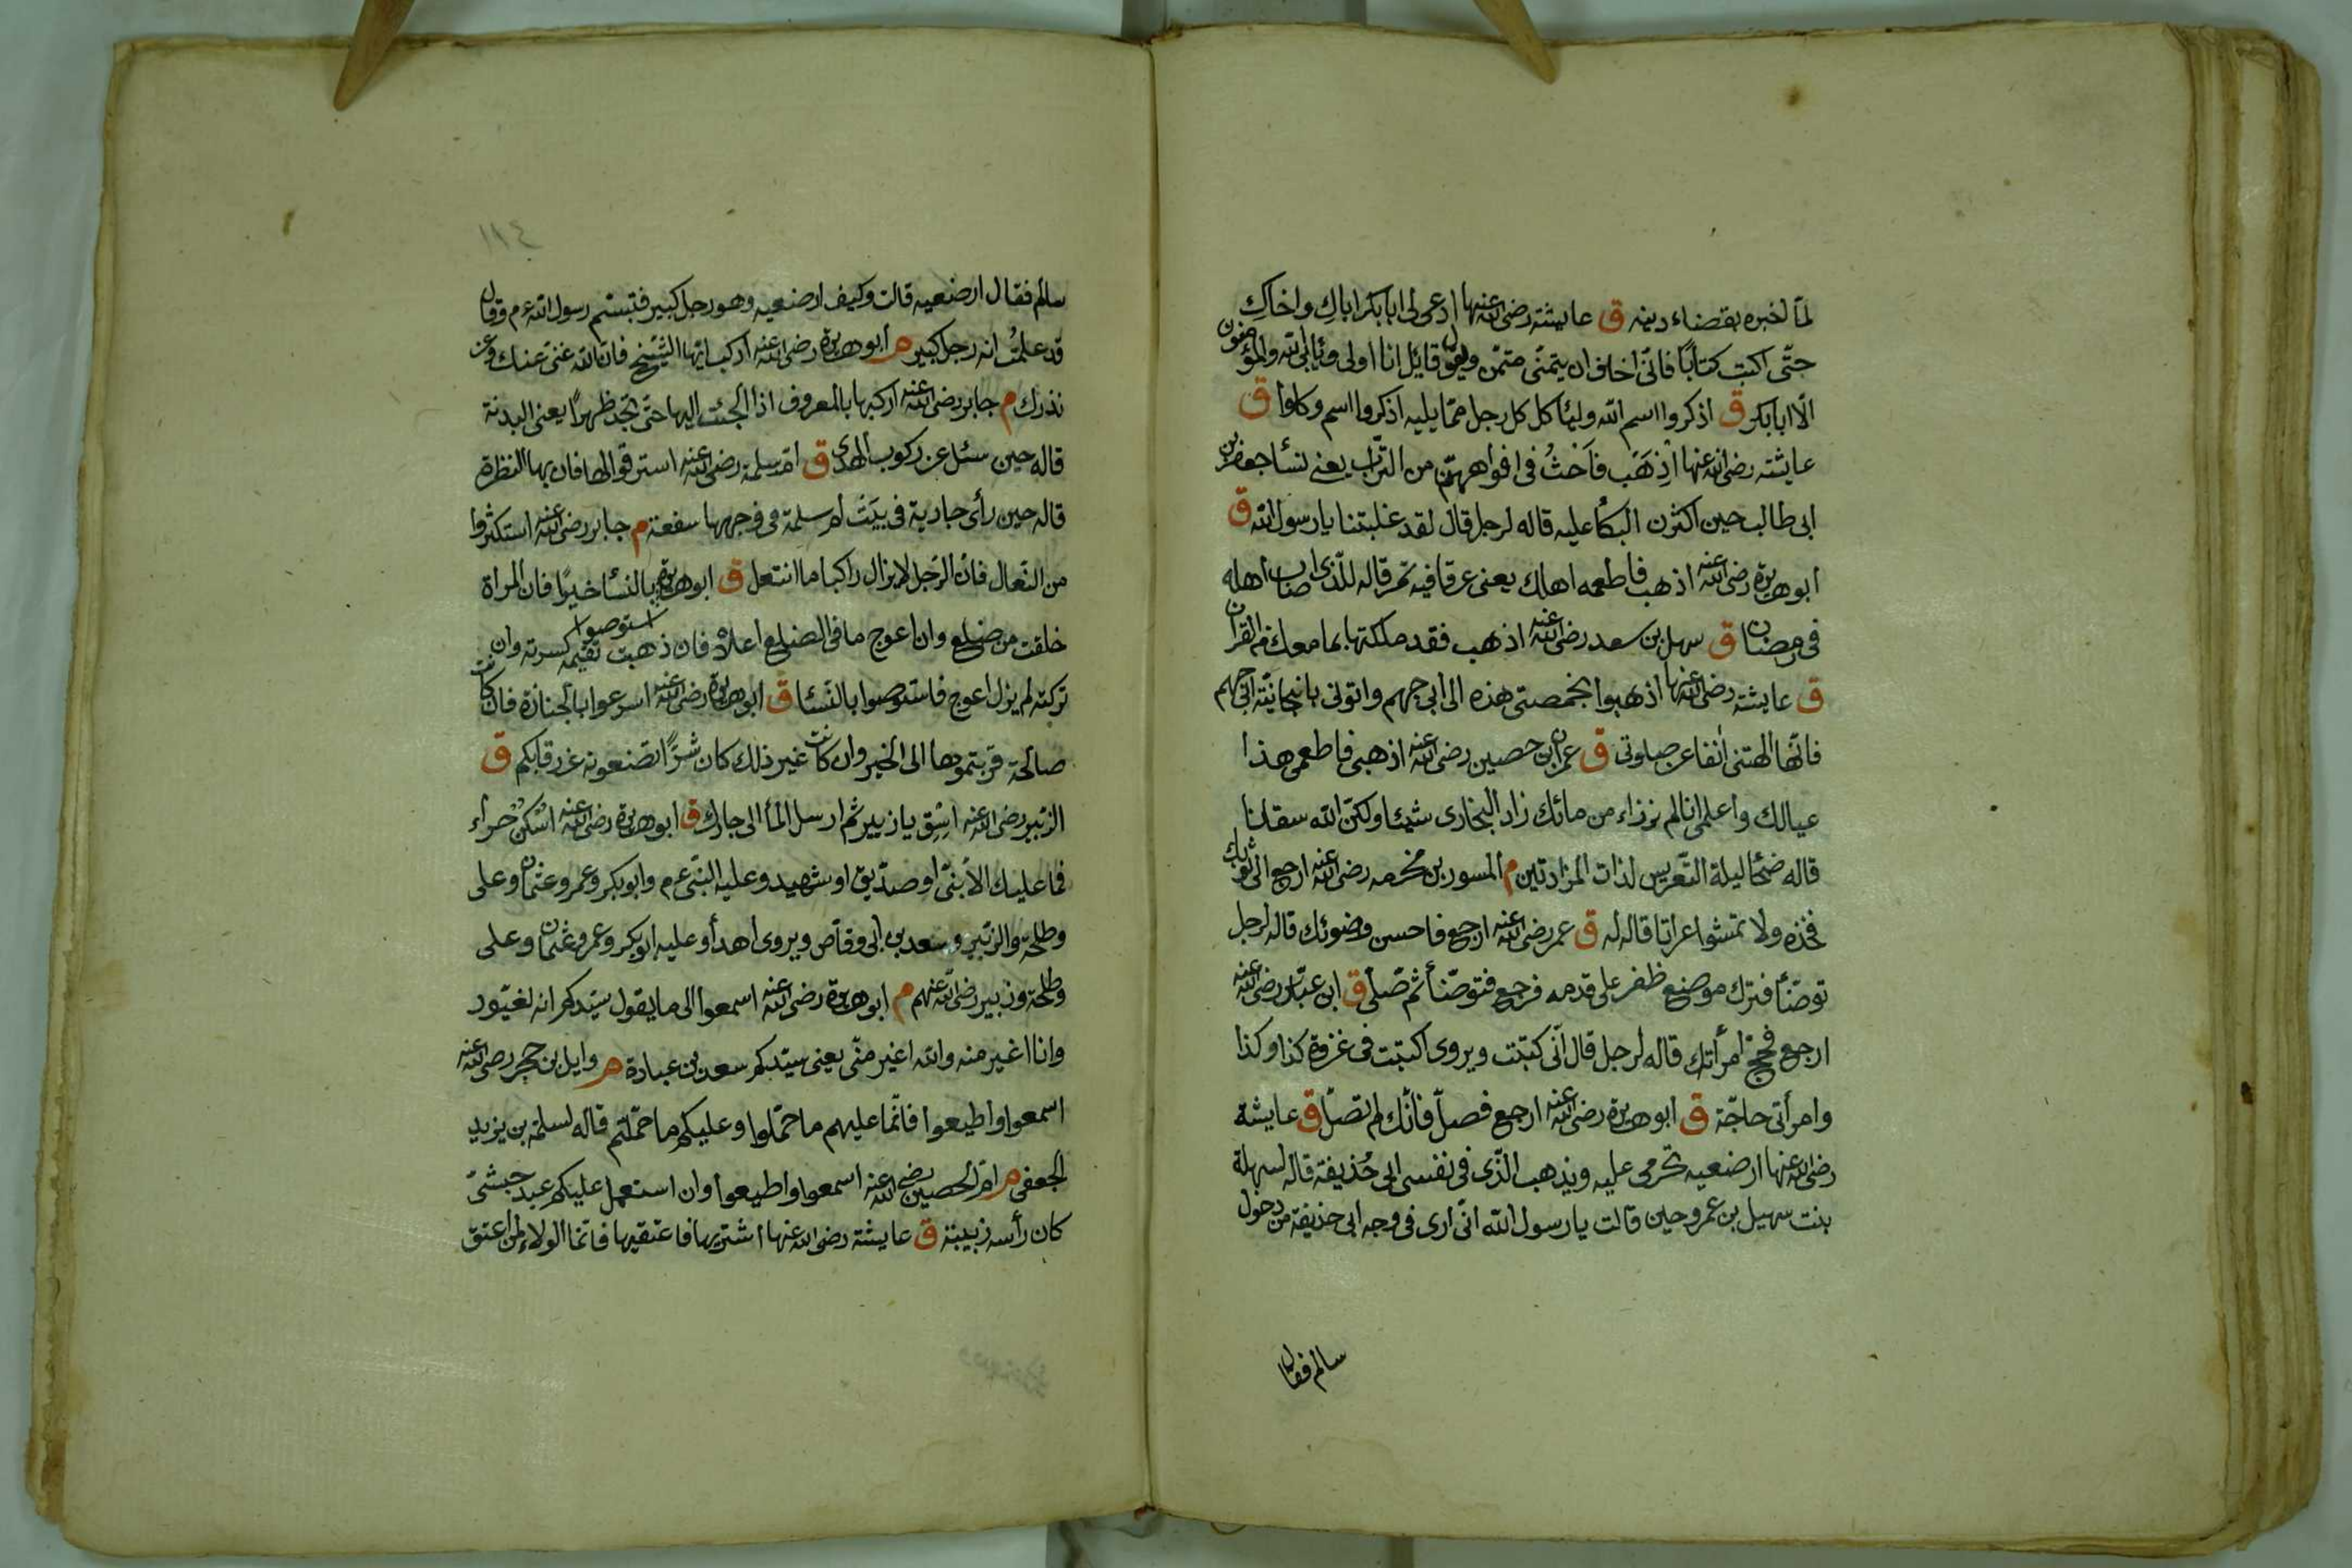 لمّا اخبره بقضاء دينه ق عايشة رضى الله عنها ادعى لى ابا بكر اباكِ واخاكِ
حتّى اكتب كتابًا فانّى اخاف ان يتمنّى متمنّ ويقول قايل انا اولى ويأبى الله والمؤمنون
الّا ابا بكر ق اذكروا اسم الله وليأكل كل رجل ممّا يليه اذكروا اسم وكلوا ق
عايشة رضى الله عنها اِذهَب فاَحْثُ فى افواههنّ من التّراب يعنى نسأ جعفر بن
ابى طالب حين اكثرن البكأ عليه قاله لرجل قال لقد غلبتنا يا رسول الله ق
ابو هريرة رضى الله عنه اذهب فاطعمه اهلك يعنى عرقا فيه تمر قاله للّذى اصاب اهله
فى رمضان ق سهل بن سعد رضى الله عنه اذهب فقد ملكتها بما معك من القرآن
ق عايشة رضى الله عنها اذهبوا بخمصتى هذه الى ابى جهم واتونى بانبجانيّة ابى جهم
فانّها الهتنى انفا عن صلوتى ق عمران بن حصين رضى الله عنه اذهبى فاطعمى هذا
عيالك واعلمى انا لم نرزاء من مائك زاد البخارى شيئا ولكنّ الله سقانا
قاله ضحًا ليلة التّعريس لذات المزادتين م المسور بن مخرمه رضى الله عنه ارجع الى ثوبك
فخذه ولا تمشوا عراتا قاله له ق عمر رضى الله عنه ارجع فاحسن وضوئك قاله لرجل
توضّأ فترك موضع ظفر على قدمه فرجع فتوضّأ ثم صّلى ق ابن عبّاس رضى الله عنه
ارجع فحجّ امرأتك قاله لرجل قال انّى كتبّت ويروى اكتبّت فى غزوة كذا وكذا
وامرأتى حاجّة ق ابو هريرة رضى الله عنه ارجع فصلّ فانّك لم تصلّ ق عايشة
رضى الله عنها ارضعيه تحرمى عليه ويذهب الّذى فى نفس ابى حُذيفة قاله لسهلة
بنت سهيل بن عمرو حين قالت يا رسول الله انّى ارى فى وجه ابى حذيفة من دخول
سالم فقال
١١٤
سالم فقال ارضعيه قالت وكيف ارضعيه وهو رجل كبير فتبسّم رسول الله ع م وقال
قد علمتُ انه رجل كبير م ابو هريرة رضى الله عنه اركب ايّها الشّيخ فانّ الله غنىّ عنك وعن
نذرك م جابر رضى الله عنه اركبها بالمعروف اذا الجئت اليها حتّى تجد ظهرًا يعنى البدنة
قاله حين سئل عن ركوب الهدى ق امّ سلمة رضى الله عنه استرقوا لها فان بها النظرة
قاله حين رأى جارية فى بيَت ام سلمة فى وجهها سفعة م جابر رضى الله عنه استكثروا
من النّعال فانّ الرّجل لا يزال راكبا ما انتعل ق ابو هريرة استوصوا بالنسأ خيرًا فان المرأة
خلقت من ضلع وان اعوج ما فى الضلع اعلاه فان ذهبت تقيمه كسرته وان
تركته لم يزل اعوج فاستوصوا بالنّسأ ق ابو هريرة رضى الله عنه اسرعوا بالجنازة فان كانت
صالحة قرّبتموها الى الخير وان كانت غير ذلك كان شرًّا تضعونه عن رقابكم ق
الزّبير رضى الله عنه اسْقِ يا زبير ثم ارسل المأ الى جارك ق ابو هريرة رضى الله عنه اسْكن حراء
فما عليك الا نبىّ او صدّيق او شهيد وعليه النبّى ع م وابو بكر وعمر وعثمان وعلى
وطلحة والزّبير وسعد بن ابى وقاّص ويروى اهدأ وعليه ابو بكر وعمر وعثمان وعلى
وطلحة وزبير رضى الله عنهم م ابو هريرة رضى الله عنه اسمعوا الى ما يقول سيّدكم انه لغيّور
وانا اغير منه والله اغير منّى يعنى سيّدكم سعد بن عبادة م وايل بن حجر رضى الله عنه
اسمعوا واطيعوا فانّما عليهم ما حمّلوا وعليكم ما حمّلتم قاله لسلمة بن يزيد
الجعفى م امّ الحصين رضى الله عنه اسمعوا واطيعوا وان استعمل عليكم عبد حبشىّ
كان رأسه زبيبة ق عايشة رضى الله عنها اشتريها فاعتقيها فانّما الولاء لمن اعتق